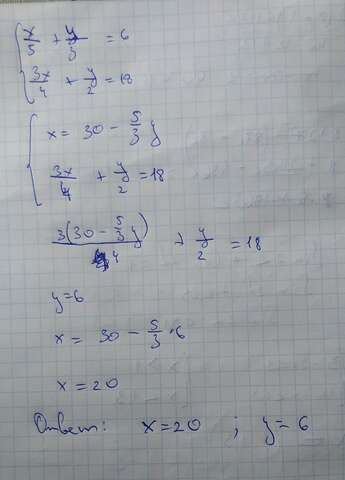 x/5 + y/3 = 6
3x/4 + y/2 = 18
x = 30 - 5/3 y
3x/4 + y/2 = 18
3(30 - 5/3 y)/4 + y/2 = 18
y = 6
x = 30 - 5/3 · 6
x = 20
Ответ: x = 20 ; y = 6